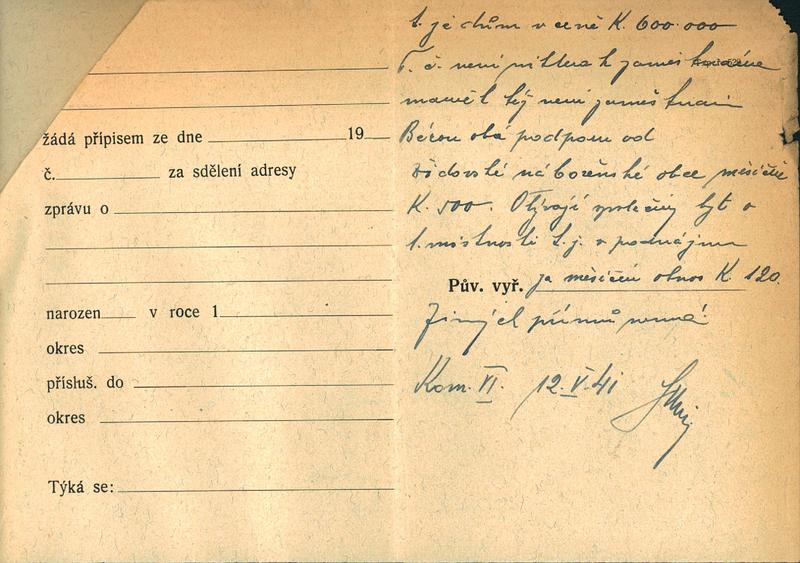 žádá přípisem ze dne 19
č. za sdělení adresy
zprávu o
narozen v roce 1
okres
přísluš. do
okres
Týká se:
t. j. dům v ceně K. 600.000
T. č. není
manžel též není
Berou oba podporu od
židovské náboženské obce měsíčně
K. 500. Obývají společný byt o
1. místnosti t. j. v podnájmu
Pův. vyř. za měsíční obnos K 120.
Jiných příjmů nemá.
Kom. VI. 12.V.41